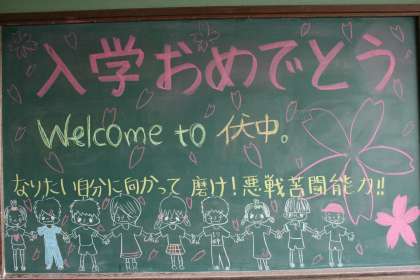 入学おめでとう
Welcome to 伏中。
なりたい自分に向かって 磨け!悪戦苦闘能力!!